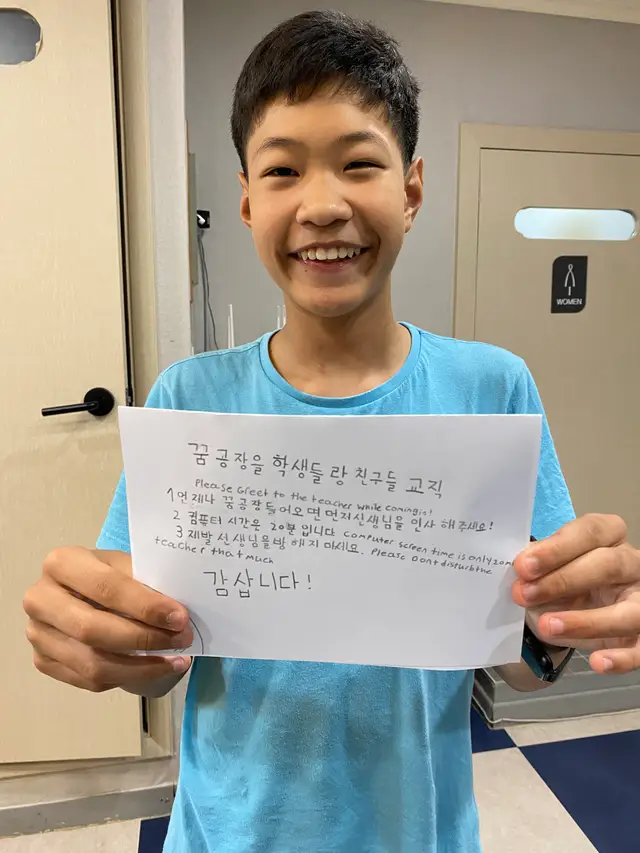 WOMEN
꿈 공장을 학생들 랑 친구들 교직
Please Greet to the teacher while coming in!
1 언제나 꿈 공장 들어오면 먼저 선생님을 인사 해주세요!
2 컴퓨터 시간은 20분 입니다 computer screen time is only 20min
3 제발 선생님을 방해지 마세요. Please Dont disturb the
teacher that much
감삽니다!